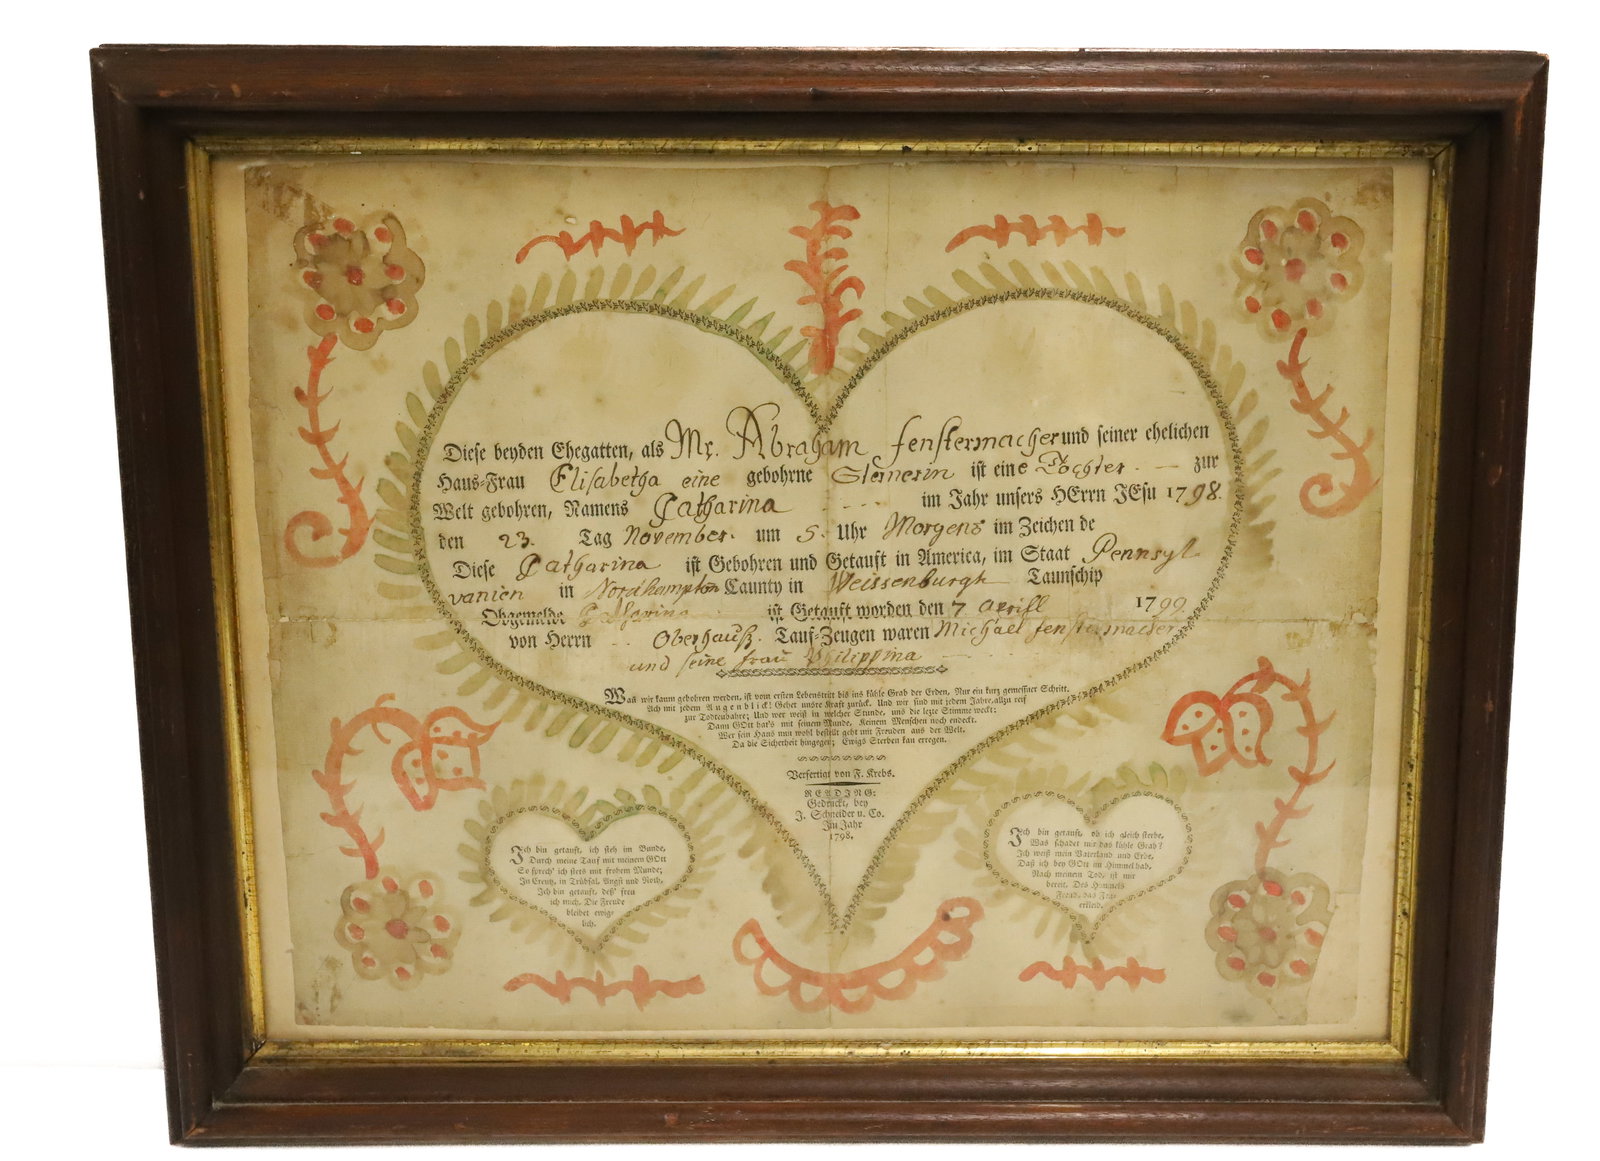 Diese beyden Ehegatten, als Mr. Abraham fenstermacher und seiner ehelichen
Haus-Frau Elisabetha eine gebohrne Steinerin ist eine Tochter zur
Welt gebohren, Namens Catharina im Jahr unsers HErrn JEsu 1798.
den 23. Tag November. um 5. Uhr Morgens im Zeichen de
Diese Catharina ist Gebohren und Getauft in America, im Staat Pennsyl-
vanien in Nordhampton Caunty in Weissenburgh Taunschip
Obgemelde Catharina ist Getauft worden den 7 Aprill 1799.
von Herrn Oberhauß. Tauf-Zeugen waren Michael fenstermacher
und seine frau Philippina
Was wir kaum gebohren werden, ist vom ersten Lebenstritt bis ins kühle Grab der Erden, Nur ein kurz gemeßner Schritt.
Ach mit jedem Augenblick! Gehet unsre Kraft zurück. Und wir sind mit jedem Jahre, allzu reif
zur Todtenbahre; Und wer weiß in welcher Stunde, uns die lezte Stimme weckt;
Dann GOtt hat's mit seinem Munde, Keinem Menschen noch endeckt.
Wer sein Haus nun wohl bestellt geht mit Freuden aus der Welt.
Da die Sicherheit hingegen; Ewigs Sterben kan erregen.
Verfertigt von F. Krebs.
READING:
Gedruckt, bey
J. Schneider u. Co.
Im Jahr
1798.
Ich bin getauft, ich steh im Bunde,
Durch meine Tauf mit meinem GOtt
So sprech' ich stets mit frohem Munde;
In Creutz, in Trübsal, Angst und Noth,
Ich bin getauft, deß' freu
ich mich, Die Freude
bleibet ewig-
lich.
Ich bin getauft, ob ich gleich sterbe,
Was schadet mir das kühle Grab?
Ich weiß mein Vaterland und Erbe,
Daß ich bey GOtt im Himmel hab,
Nach meinem Tod, ist mir
bereit, Des Himmels
Freud, das Fey-
erkleid.